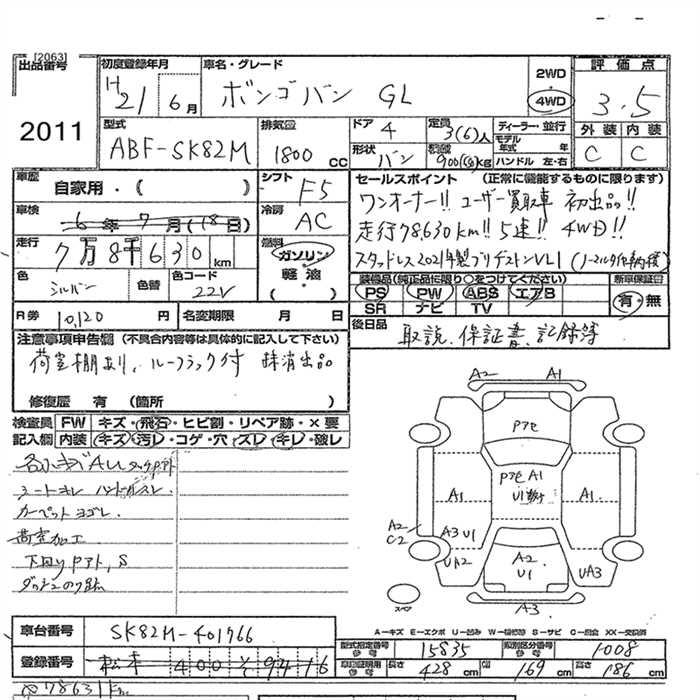 [2063]
出品番号
2011
初度登録年月
H21 6月
車名・グレード
ボンゴバン GL
2WD
4WD
評価点
3.5
外装 内装
C C
型式
ABF-SK82M
排気量
1800 cc
ドア
4
形状
バン
定員
3(6)人
900 kg
ディーラー・並行
モデル年式 年
ハンドル 左・右
車歴
自家用・( )
シフト
F5
車検
6年7月(18日)
冷房
AC
走行
7万8千630km
燃料
ガソリン
軽油
( )
色
シルバー
色替
色コード
22V
R券
10,120円
名変期限 月 日
セールスポイント (正常に機能するものに限ります)
ワンオーナー!! ユーザー買取車 初出品!!
走行78,630km!! 5速!! 4WD!!
スタッドレス2021年製ブリヂストンVL1
装備品(純正品に限り○をつけてください)
新車保証書
PS PW ABS エアB
SR ナビ TV
有・無
後日品
取説、保証書、記録簿
注意事項申告欄 (不具合内容等は具体的に記入して下さい)
荷室棚あり、ルーフラック付 抹消出品
修復歴 有 (箇所 )
検査員記入欄
FW キズ・飛石・ヒビ割・リペア跡・×要
内装 キズ・汚レ・コゲ・穴・スレ・キレ・破レ
シートヨレ ハンドルスレ、
カーペットヨゴレ、
荷室加工
下回りPアト、S
A2 A1
Pアセ
PアセA1
U1
A1 A1
A2
C2
A3 U1
UA2
A2
U1
UA3
A3
スペア
A-キズ E-エクボ U-凹み W-補修跡 S-サビ C-腐食 XX-交換済
車台番号
SK82M-401766
登録番号
松本 400 そ 9416
型式指定番号
15835
類別区分番号
1008
長さ
428 cm
幅
169 cm
高さ
186 cm
78631km